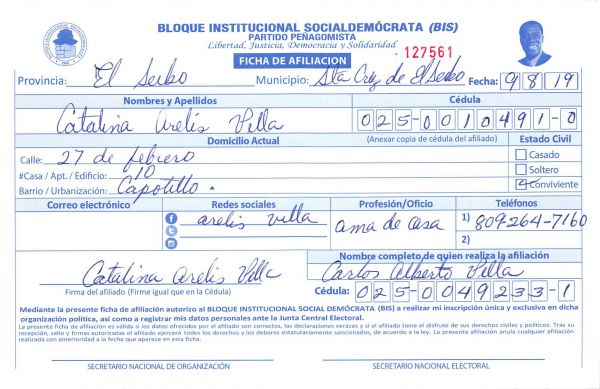 BLOQUE INSTITUCIONAL SOCIALDEMÓCRATA (BIS)
PARTIDO PEÑAGOMISTA
Libertad, Justicia, Democracia y Solidaridad
FICHA DE AFILIACION
127561
Provincia: El Seibo Municipio: Sta Cruz de El Seibo Fecha: 9 8 19
Nombres y Apellidos Cédula
Catalina Arelis Villa 025-0010491-0
Domicilio Actual (Anexar copia de cédula del afiliado) Estado Civil
Calle: 27 de febrero Casado
#Casa / Apt. / Edificio: 10 Soltero
Barrio / Urbanización: Capotillo. Conviviente
Correo electrónico Redes sociales Profesión/Oficio Teléfonos
arelis villa ama de casa 1) 809-264-7160
2)
Nombre completo de quien realiza la afiliación
Catalina Arelis Villa Carlos Alberto Villa
Firma del afiliado (Firme igual que en la Cédula) Cédula: 025-0049233-1
Mediante la presente ficha de afiliación autorizo al BLOQUE INSTITUCIONAL SOCIAL DEMÓCRATA (BIS) a realizar mi inscripción única y exclusiva en dicha
organización política, así como a registrar mis datos personales ante la Junta Central Electoral.
La presente ficha de afiliación es válida si los datos ofrecidos por el afiliado son correctos, las declaraciones veraces y si el afiliado tiene el disfrute de sus derechos civiles y políticos. Tras su
recepción, sello y firmas autorizadas el afiliado ejercerá todos los derechos y los deberes estatutariamente sancionados, de acuerdo a la ley. La presente afiliación anula cualquier afiliación
realizada con anterioridad a la fecha que aparece en esta ficha.
SECRETARIO NACIONAL DE ORGANIZACIÓN SECRETARIO NACIONAL ELECTORAL